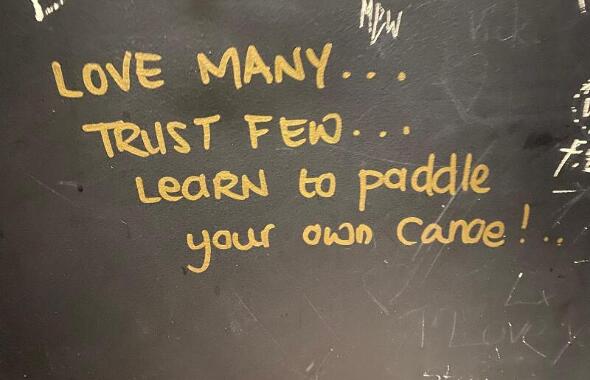 MBW
LOVE MANY...
TRUST FEW...
LeaRN to paddle
your own canoe!..